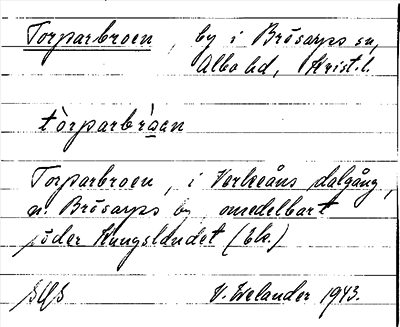 Torparbroen, by i Brösarps sn,
Albo hd, Krist. l.
tòrparbròaen
Torparbroen, i Verkeåns dalgång,
n. Brösarps by, omedelbart
söder Kungslandet (Ek.)
V. Welander 1943.